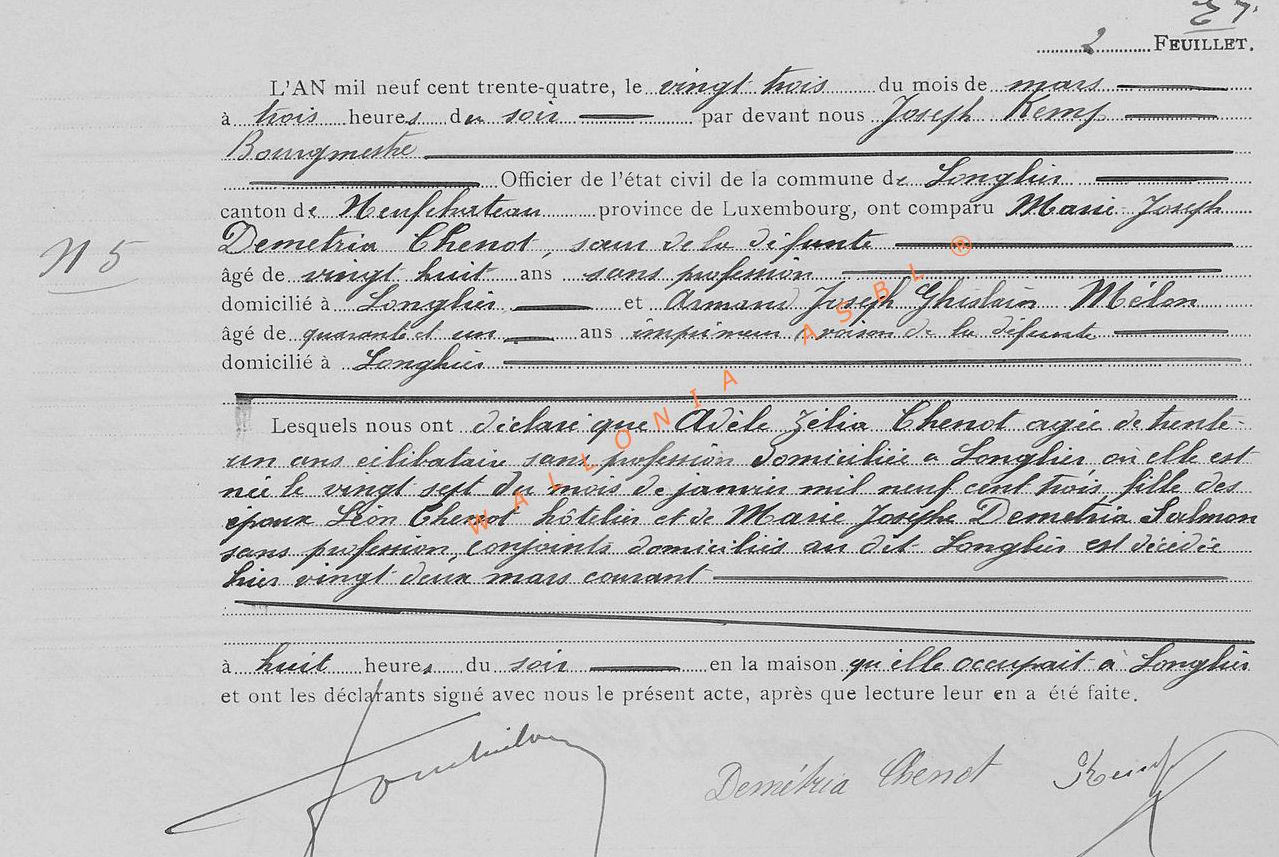 2 FEUILLET.
L'AN mil neuf cent trente-quatre, le vingt trois du mois de mars
à trois heures du soir par devant nous Joseph Kemp
Bourgmestre
Officier de l'état civil de la commune de Longlier
canton de Neufchateau province de Luxembourg, ont comparu Marie-Joseph
Demetria Chenot, sœur de la défunte
âgé de vingt huit ans sans profession
N 5
domicilié à Longlier et Armand Joseph Ghislain Mélon
âgé de quarante et un ans imprimeur voisin de la défunte
domicilié à Longlier
Lesquels nous ont déclaré que Adèle Zélia Chenot agée de trente-
un ans célibataire sans profession domiciliée a Longlier, où elle est
née le vingt sept du mois de janvier mil neuf cent trois, fille des
époux Léon Chenot hôtelier et de Marie Josephe Demetria Salmon
sans profession, conjoints domiciliés au dit Longlier est décédée
hier vingt deux mars courant
à huit heures du soir en la maison qu'elle occupait à Longlier
et ont les déclarants signé avec nous le présent acte, après que lecture leur en a été faite.
Demétria Chenot Kemp
WALLONIA ASBL ®